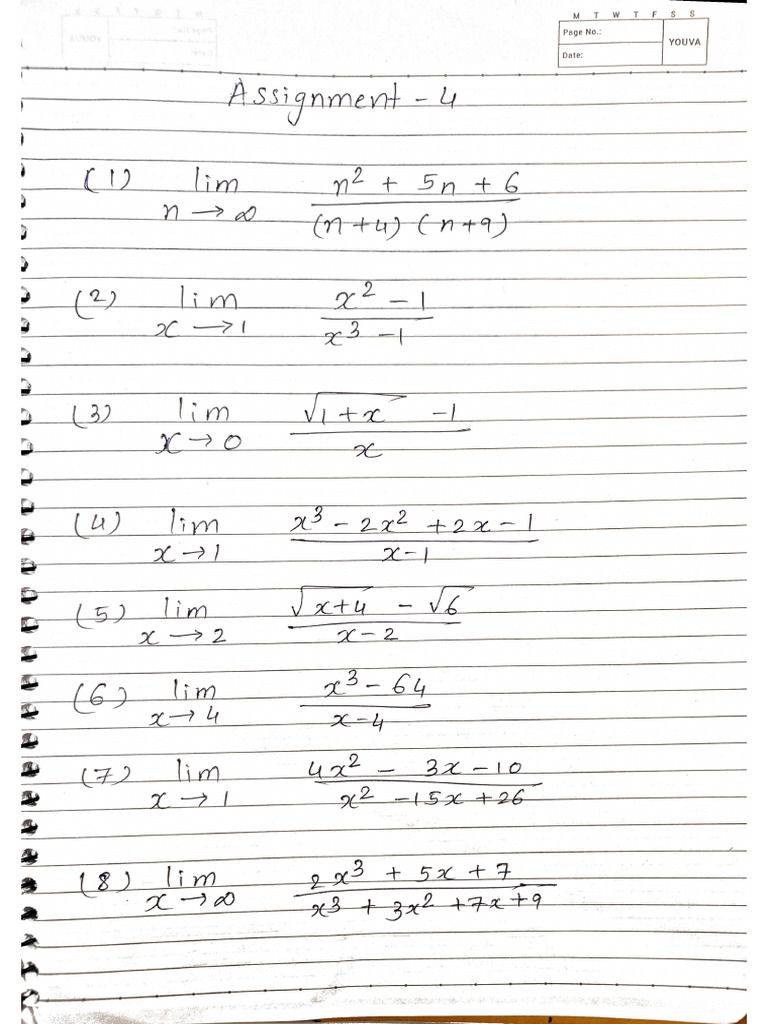 M T W T F S S
Page No.:
YOUVA
Date:
Assignment - 4
(1) lim n→∞ (n² + 5n + 6) / ((n+4) (n+9))
(2) lim x→1 (x² - 1) / (x³ - 1)
(3) lim x→0 (√(1+x) - 1) / x
(4) lim x→1 (x³ - 2x² + 2x - 1) / (x-1)
(5) lim x→2 (√(x+4) - √6) / (x-2)
(6) lim x→4 (x³ - 64) / (x-4)
(7) lim x→1 (4x² - 3x - 10) / (x² - 15x + 26)
(8) lim x→∞ (2x³ + 5x + 7) / (x³ + 3x² + 7x + 9)